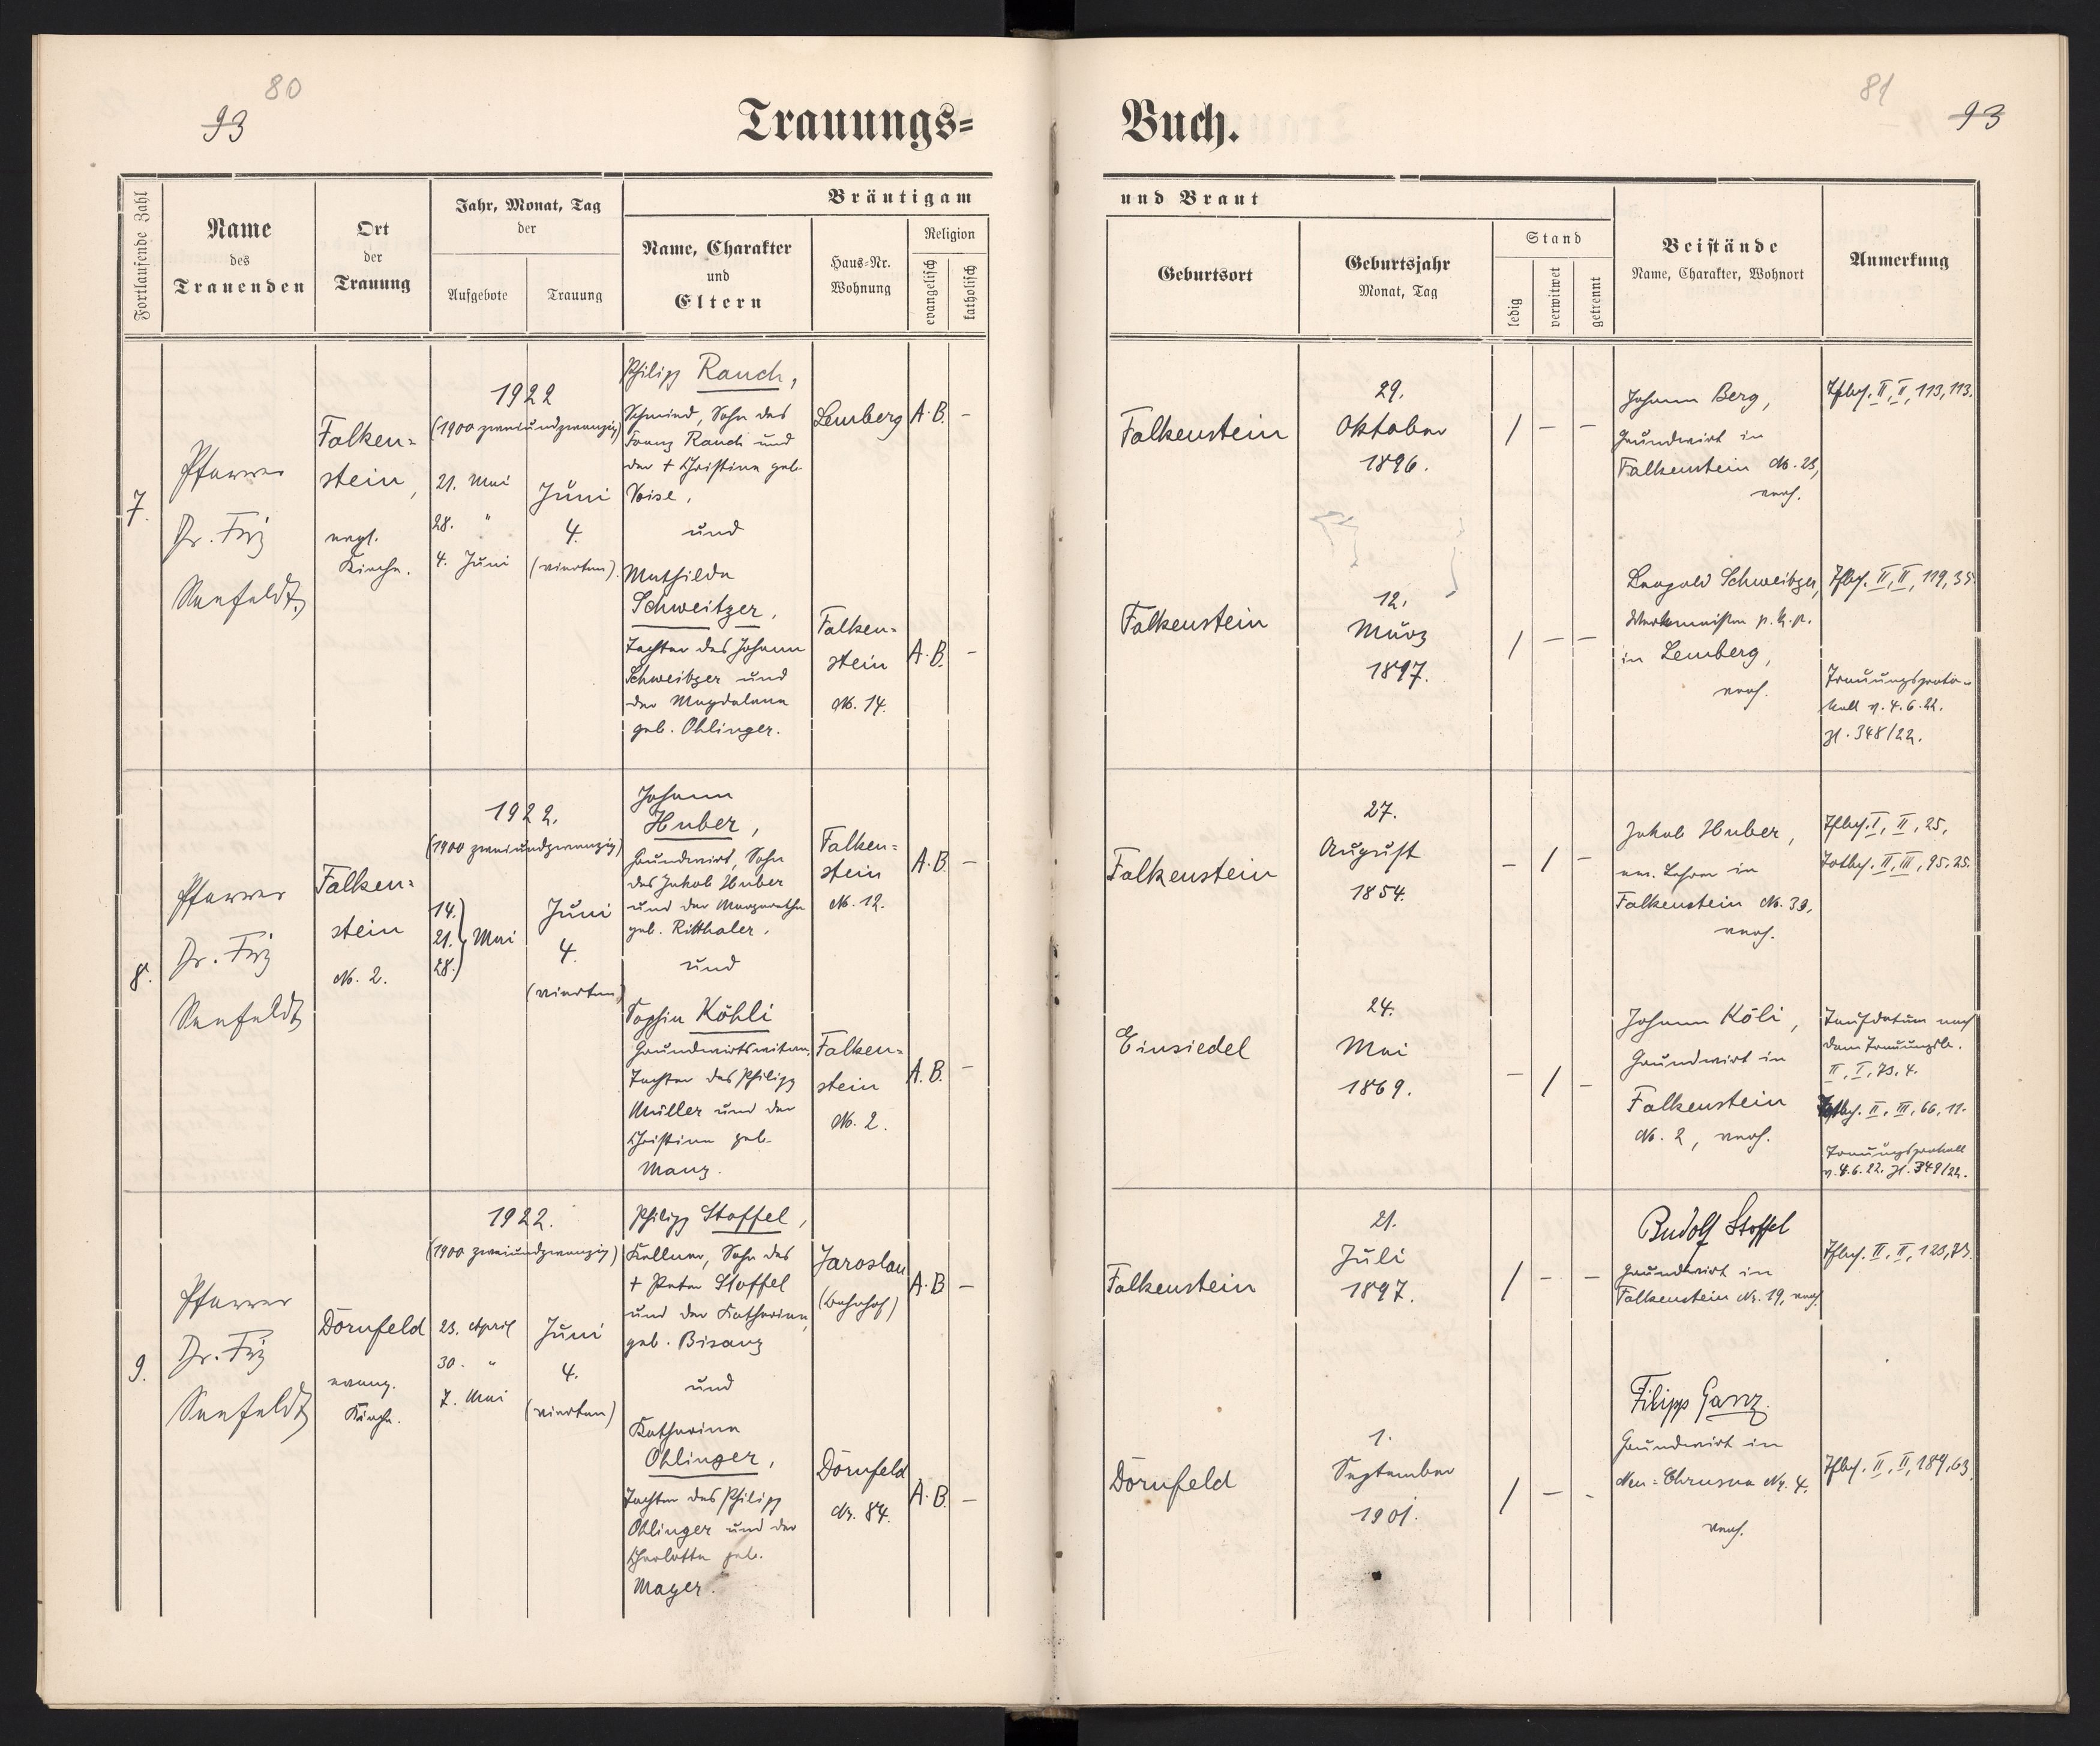 80
93
Trauungs=
Buch.
81
93
Fortlaufende Zahl
Name
des
Trauenden
Ort
der
Trauung
Jahr, Monat, Tag
der
Aufgebote
Trauung
Bräutigam
Name, Charakter
und
Eltern
Haus-Nr.
Wohnung
Religion
evangelisch
katholisch
und Braut
Geburtsort
Geburtsjahr
Monat, Tag
Stand
ledig
verwitwet
getrennt
Beistände
Name, Charakter, Wohnort
Anmerkung
7.
Pfarrer
Dr. Fritz
Seefeldt
Falken=
stein,
evgl.
Kirche.
1922
(1900 zweiundzwanzig)
21. Mai
28. "
4. Juni
Juni
4.
(vierten)
Philipp Rauch,
Schmied, Sohn des
Franz Rauch und
der + Christine geb.
und
Mathilde
Schweitzer,
Tochter des Johann
Schweitzer und
der Magdalena
geb. Ohlinger.
Lemberg
A. B.
-
Falken=
stein
No. 14.
A. B.
-
Falkenstein
29.
Oktober
1896.
/ - -
Falkenstein
12.
März
1897.
/ - -
Johann Berg,
Grundwirt in
Falkenstein No. 23,
evch.
Leopold Schweitzer,
Werkmeister
in Lemberg,
evch.
Tfbch. II, II, 113, 113.
Tfbch. II, II, 119, 35
Trauungsproto-
koll v. 4.6.22.
Zl. 348/22.
8.
Pfarrer
Dr. Fritz
Seefeldt
Falken=
stein
No. 2.
1922.
(1900 zweiundzwanzig)
14.
21. Mai
28.
Juni
4.
(vierten)
Johann
Huber,
Grundwirt, Sohn
des Jakob Huber
und der Margarethe
geb. Ritthaler,
und
Sophie Köhli
Grundwirtswitwe,
Tochter des Philipp
Müller und der
Christine geb.
Manz.
Falken=
stein
No. 12.
A. B.
-
Falken=
stein
No. 2.
A. B.
-
Falkenstein
27.
August
1854.
- / -
Einsiedel
24.
Mai
1869.
- / -
Jakob Huber,
em. Lehrer in
Falkenstein No. 39,
evch.
Johann Köli,
Grundwirt in
Falkenstein
No. 2, evch.
Tfbch. I, II, 25,
Totbch. II, III, 95, 25.
Taufdatum nach
dem Trauungsb.
II, I, 73, 4.
Totbch. II, III, 66, 11.
Trauungsprotokoll
v. 4.6.22. Zl. 349/22.
9.
Pfarrer
Dr. Fritz
Seefeldt
Dornfeld
evang.
Kirche.
1922.
(1900 zweiundzwanzig)
23. April
30. "
7. Mai
Juni
4.
(vierten)
Philipp Stoffel,
Kellner, Sohn des
+ Peter Stoffel
und der Katharina,
geb. Bisanz
und
Katharina
Ohlinger,
Tochter des Philipp
Ohlinger und der
Charlotte geb.
Mayer.
Jaroslau
(Bahnhof)
A. B
-
Dornfeld
Nr. 84.
A. B.
-
Falkenstein
21.
Juli
1897.
/ - -
Dornfeld
1.
September
1901.
/ - -
Rudolf Stoffel
Grundwirt in
Falkenstein Nr. 19, evch.
Filipp Ganz.
Grundwirt in
Neu=Chrusno Nr. 4.
evch.
Tfbch. II, II, 123, 73.
Tfbch. II, II, 189, 63